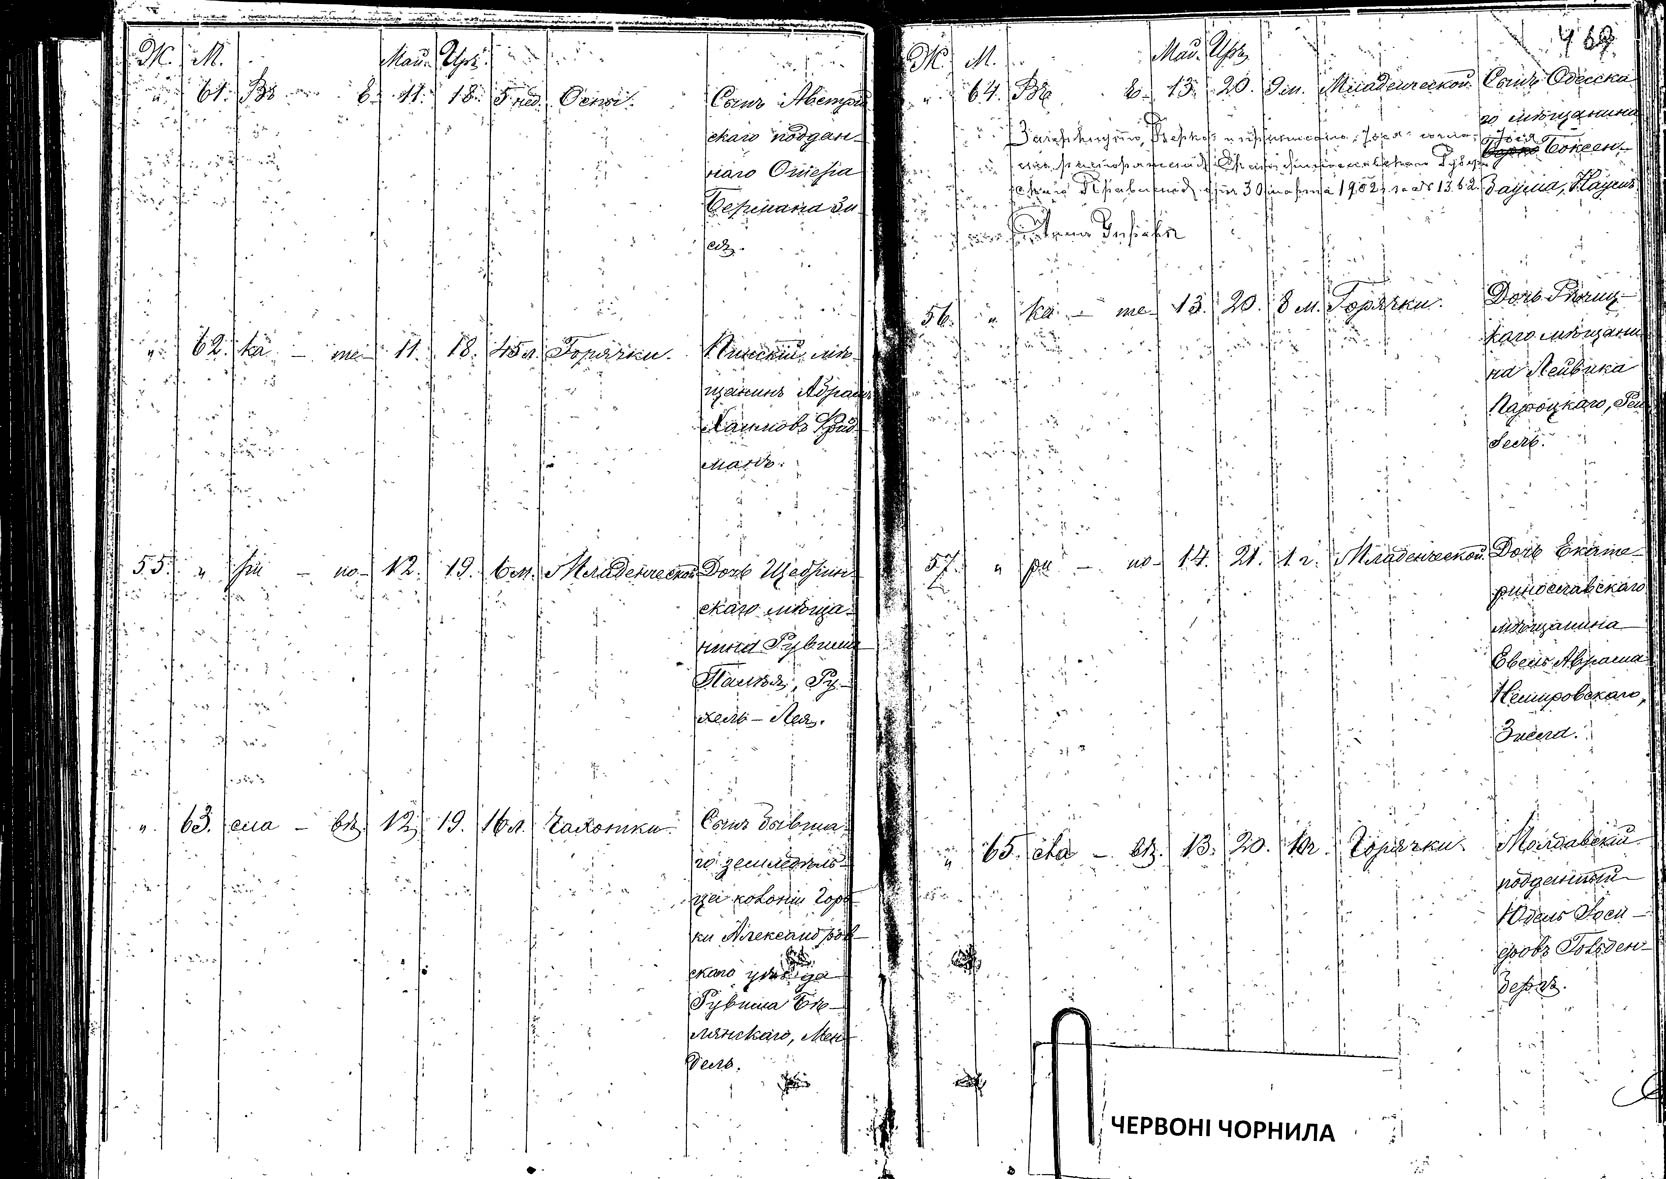 Ж. М. Май. Iуръ
" 61. Въ Е- 11. 18. 5 нед. Оспы. Сынъ Австрій
скаго поддан-
наго Отера
Бермана Зи
" 62. ка - те- 11. 18. 45 л. Горячки. Пинскій мѣ-
щанинъ Абрамъ
Хаимовъ Фрид
манъ.
55. " ри - но- 12. 19. 6 м. Младенческой Дочь Щедрин-
скаго мѣща-
нина Рувима
Палѣя, Ру-
хель-Лея.
" 63. сла - въ. 12. 19. 16 л. Чахотки. Сынъ бывша-
го земледѣль-
ца колоніи Горь
ки Александров-
скаго уѣзда
Рувима Бѣ-
лянскаго, Мен-
дель.
469
Ж. М. Май. Iуръ
" 64. Въ Е- 13. 20. 9 м. Младенческой. Сынъ Одесска
го мѣщанина
Іося
Берко Боксен-
Зачеркнутое „Берко"
Правленія отъ 30 марта 1902 г. за № 1362. баума, Наумъ
56. " ка - те- 13. 20. 8 м. Горячки. Дочь Рѣчиц-
каго мѣщани
на Лейвика
Пароцкаго, Рей
зель.
57. " ри - но- 14. 21. 1 г. Младенческой. Дочь Екате-
ринославскаго
мѣщанина
Евель Аврама
Немировскаго,
Зисла.
" 65. сла - въ. 13. 20. Горячки. Молдавскій
подданный
Юдель Іоси-
фовъ Гольден-
бергъ.
ЧЕРВОНІ ЧОРНИЛА